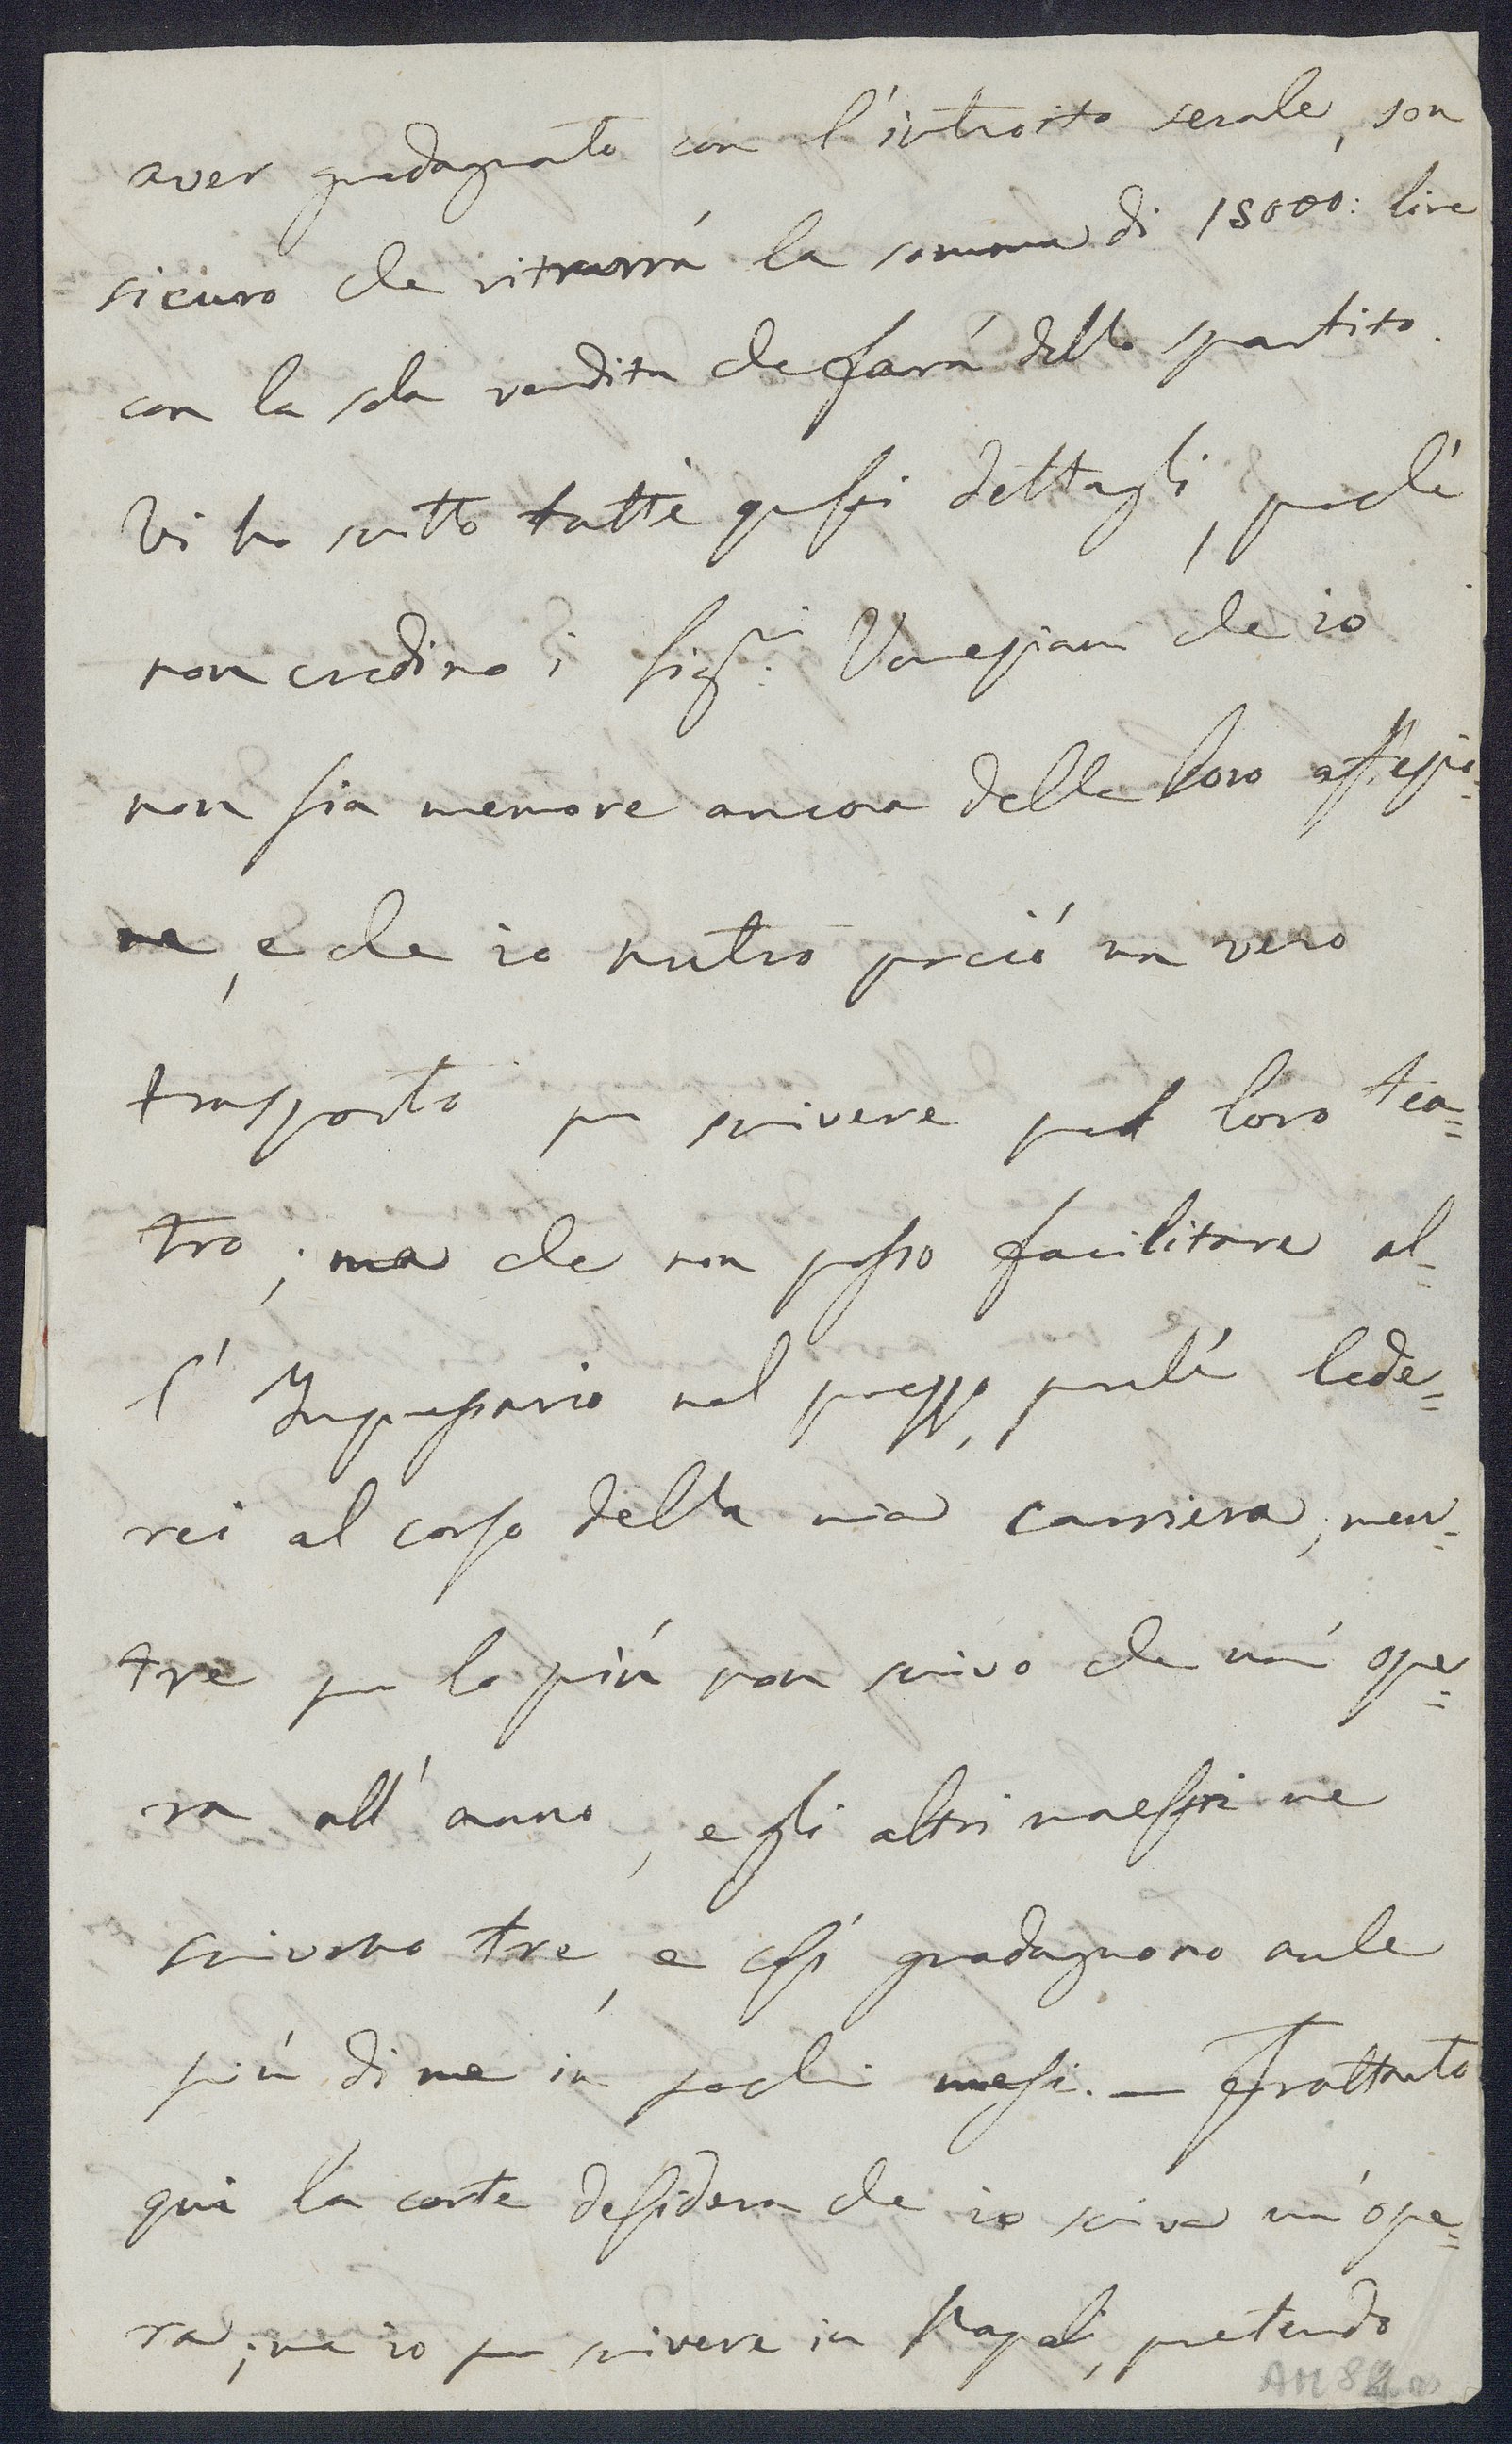 aver guadagnato con l'introito serale, son
sicuro che ritrarrá la somma di 15000: lire
con la sola vendita che fará dello spartito.
Vi ho scritto tutti questi dettagli, perché
non credino i Sig.ri Veneziani che io
non sia memore ancora della loro affezio=
ne, e che io nutro perció un vero
trasporto per scrivere pel loro tea=
tro; ma che non posso facilitare al=
l' Impressario nel prezzo, perché lede=
rei al corso della mia carriera; men=
tre per lo piú non scrivo che un' ope=
ra all' anno, e gli altri maestri ne
scrivono tre, e cosí guadagnono anche
piú di me in pochi mesi. — Frattanto
qui la corte desidera che io scriva un' ope=
ra; ma io per scrivere in Napoli, pretendo